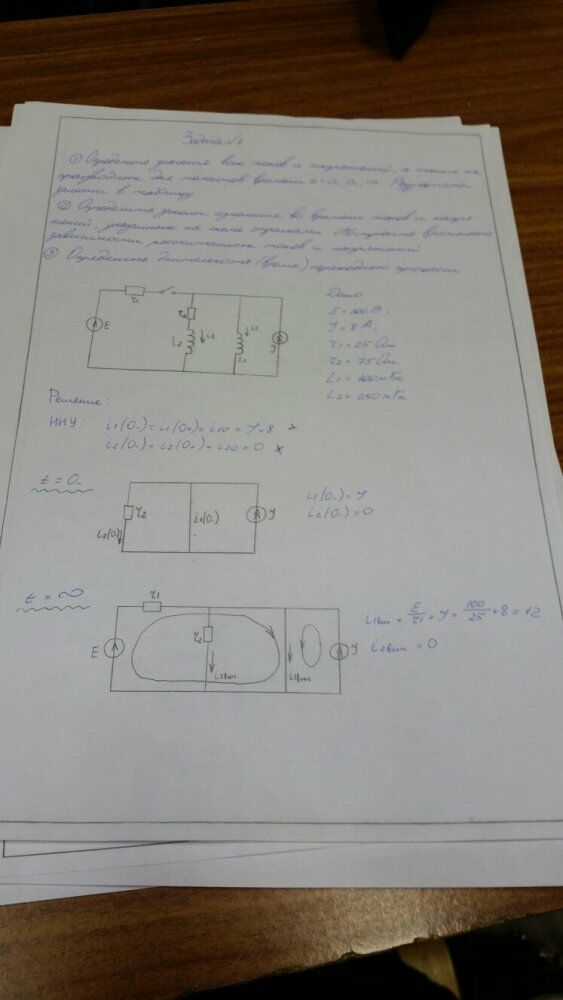 Задача №
① Определить значения всех токов и напряжений, а также их
производных для моментов времени t = 0-, 0+, ∞. Результаты
занести в таблицу
② Определить законы изменения во времени токов и напря-
жений, указанных на схеме стрелками. Построить временные
зависимости рассчитанных токов и напряжений
③ Определить длительность (время) переходного процесса
Дано:
E = 100 В.
J = 8 А.
r1 = 25 Ом
r2 = 75 Ом
L1 = 100 мГн
L2 = 250 мГн
r1
E
r2
L2
i2
L1
i1
J
Решение:
ННУ: i1(0-) = i1(0+) = i10 = J = 8 x
i2(0-) = i2(0+) = i20 = 0 x
t = 0-
r2
i2(0-)
i1(0-)
J
i1(0-) = J
i2(0-) = 0
t = ∞
r1
E
r2
i2вын
i1вын
J
i1вын = E/r1 + J = 100/25 + 8 = 12
i2вын = 0